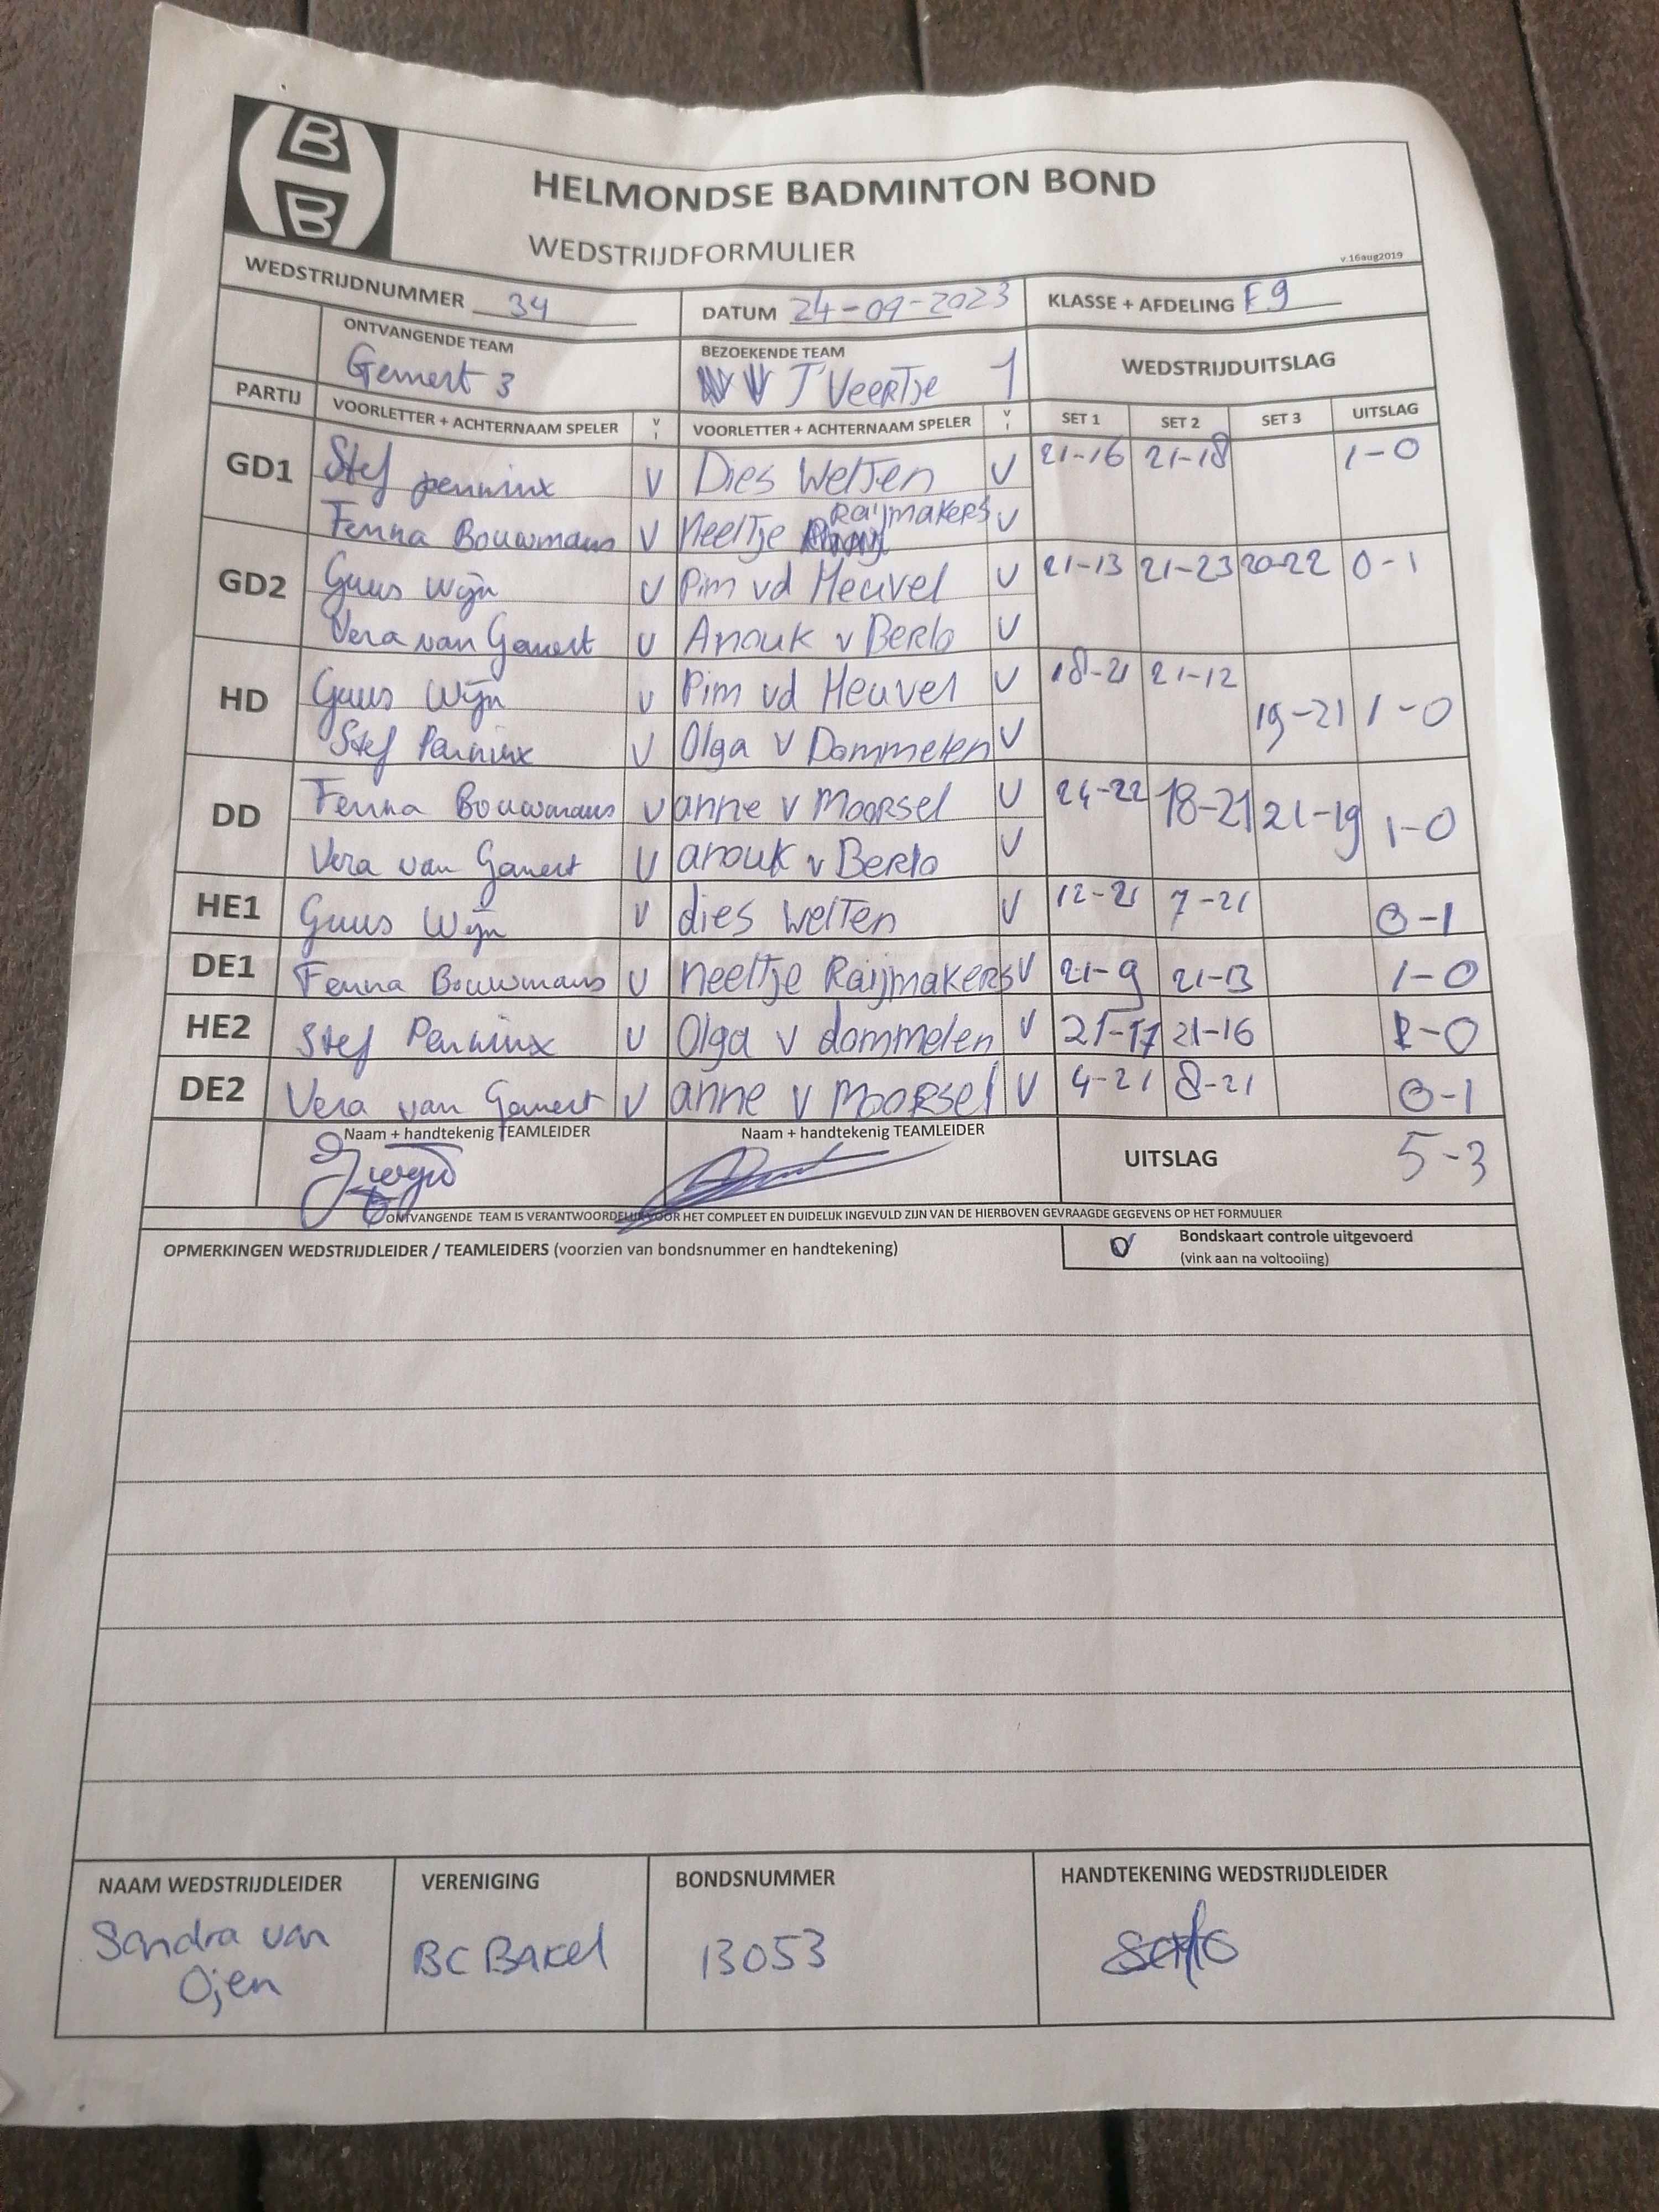 B
B
HELMONDSE BADMINTON BOND
WEDSTRIJDFORMULIER
v.16aug2019
WEDSTRIJDNUMMER 34 DATUM 24-09-2023 KLASSE + AFDELING F9
ONTVANGENDE TEAM BEZOEKENDE TEAM WEDSTRIJDUITSLAG
Gemert 3 T'Veertje 1
PARTIJ VOORLETTER + ACHTERNAAM SPELER V VOORLETTER + ACHTERNAAM SPELER V SET 1 SET 2 SET 3 UITSLAG
GD1 Stef penninx V Dies Welten V 21-16 21-18 1-0
Fenna Bouwmans V Neeltje Raijmakers V
GD2 Guus Wijn V Pim vd Heuvel V 21-13 21-23 20-22 0-1
Vera van Gemert V Anouk v Berlo V
HD Guus Wijn V Pim vd Heuvel V 18-21 21-12 19-21 1-0
Stef Penninx V Olga v Dommelen V
DD Fenna Bouwmans V anne v Moorsel V 24-22 18-21 21-19 1-0
Vera van Gemert V anouk v Berlo V
HE1 Guus Wijn V dies Welten V 12-21 7-21 0-1
DE1 Fenna Bouwmans V neeltje Raijmakers V 21-9 21-13 1-0
HE2 Stef Penninx V Olga v dommelen V 21-17 21-16 1-0
DE2 Vera van Gemert V anne v Moorsel V 4-21 8-21 0-1
Naam + handtekenig TEAMLEIDER Naam + handtekenig TEAMLEIDER UITSLAG 5-3
ONTVANGENDE TEAM IS VERANTWOORDELIJK VOOR HET COMPLEET EN DUIDELIJK INGEVULD ZIJN VAN DE HIERBOVEN GEVRAAGDE GEGEVENS OP HET FORMULIER
OPMERKINGEN WEDSTRIJDLEIDER / TEAMLEIDERS (voorzien van bondsnummer en handtekening) Bondskaart controle uitgevoerd
(vink aan na voltooiing)
NAAM WEDSTRIJDLEIDER VERENIGING BONDSNUMMER HANDTEKENING WEDSTRIJDLEIDER
Sandra van BC Bakel 13053
Ojen